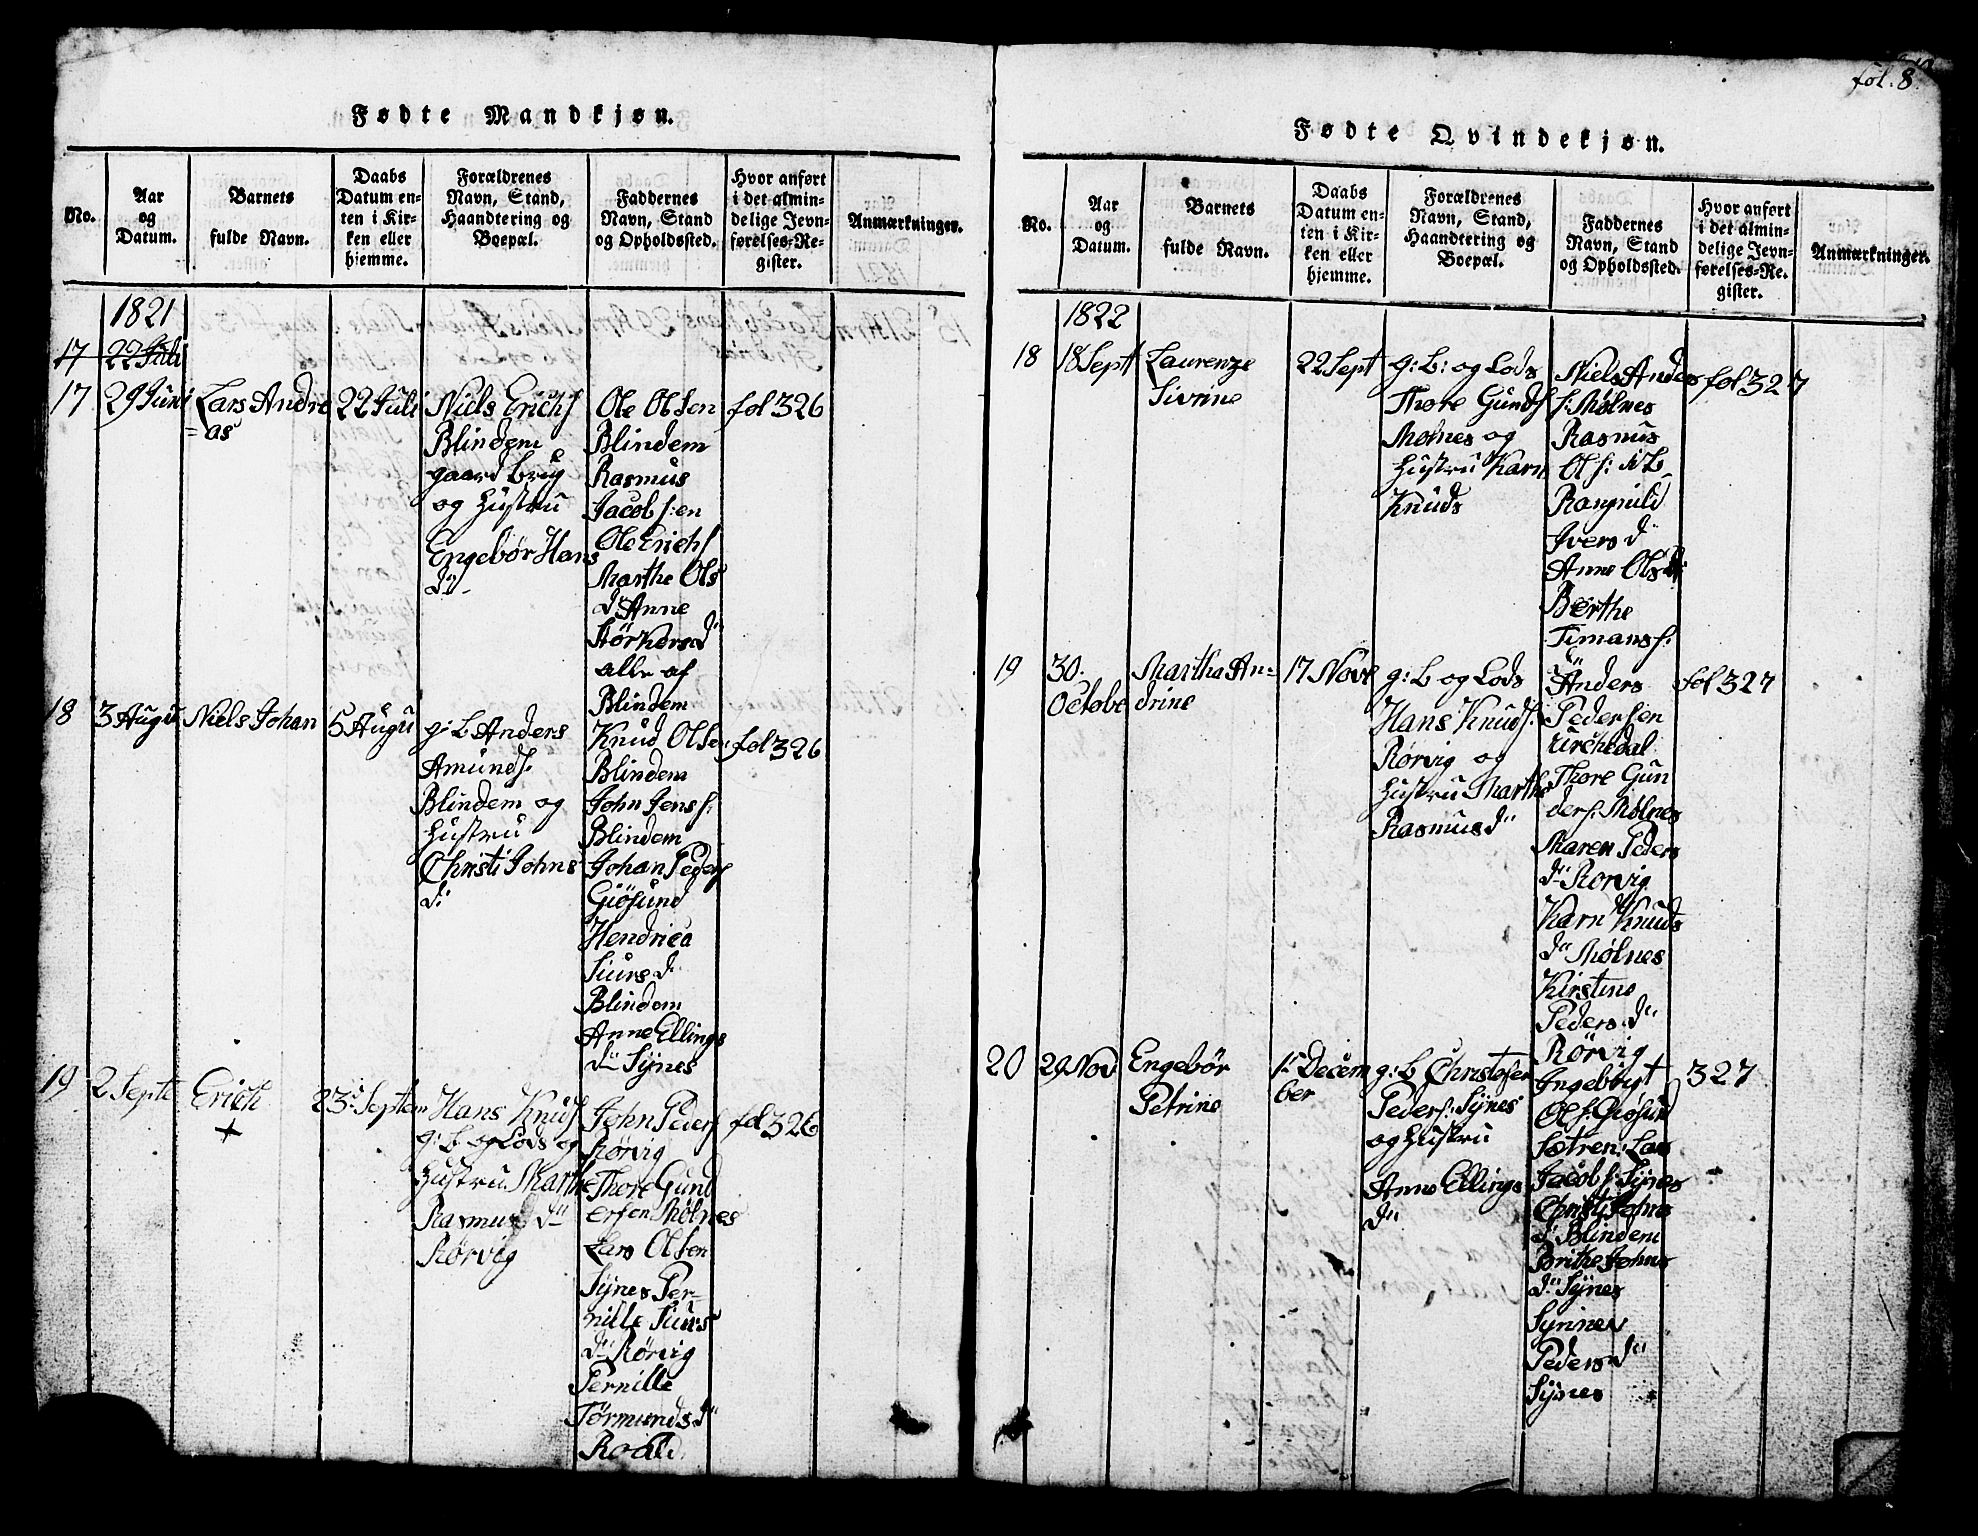 fol. 8
Fødte Mandkjøn.
No.
Aar
og
Datum.
Barnets
fulde Navn.
Daabs
Datum en-
ten i Kir-
ken eller
hjemme.
Forældrenes
Navn, Stand,
Haandtering og
Boepæl.
Faddernes
Navn, Stand
og Opholdssted.
Hvor anført
i det almin-
delige Jevn-
førelses-Re-
gister.
Anmærkninger.
1821
17 22 Juli
17 29 Juni
Lars Andre
=as
22 Juli
Niels Erichs
Blindem
gaardbrug
og Hustru
Engebør Hans
d:
Ole Olsen
Blindem
Rasmus
Jacobs:en
Ole Erichs
Marthe Ols
d: Anne
Størkersd:
alle af
Blindem
fol 326
18 3 Augu
Niels Johan
5 Augu
g: b Anders
Amunds:
Blindem og
Hustru
Christi Johns
d:
Knud Olsen
Blindem
John Jens s:
Blindem
Johan Peders
Giøsund
Hendrica
Siurs d:
Blindem
Anne Ellings
d: Synes
fol 326
19 2 Septe
Erich
+
23: Septem
Hans Knuds
g: b og Lods og
Hustru Marthe
Rasmus d:
Rørvig
John Peders
Rørvig
Thore Gund
ersen Molnes
Lars Olsen
Synes Per-
nille Siurs
d: Rørvig
Pernille
Tørmunds d:
Roald.
fol 326
Fødte Qvindekjøn.
No.
Aar
og
Datum.
Barnets
fulde Navn.
Daabs
Datum en-
ten i Kir-
ken eller
hjemme.
Forældrenes
Navn, Stand,
Haandtering og
Boepæl.
Faddernes
Navn, Stand
og Opholdssted.
Hvor anført
i det almin-
delige Jevn-
førelses-Re-
gister.
Anmærkninger.
1822
18 18 Sept
Laurenze
Sivrine
22 Sept
g: b: og Lods
Thore Gunds
Molnes og
Hustru Karn
Knuds
Niels Anders
s: Mølnes
Rasmus
Ols:
Ivers d:
Anne Ols d:
Berthe
Timans s:
fol 327
19 30.
Octobe
Martha An-
drine
17 Nove
g: b og Lods
Hans Knuds:
Rørvig og
Hustru Marthe
Rasmus d:
Anders
Pedersen
Kirchedal
Thore Gun
ders: Mølnes
Maren Peders
d: Rorvig
Karn Knuds
d: Mølnes
Kirstine
Peders d:
Rørvig
fol 327
20 29 Nov
Engebør
Petrine
1 Decem
ber
g: b Christofer
Peders: Synes
og Hustru
Anne Ellings
d:
Ingebrigt
Ols: Giøsund
Sætren: Lars
Jacobs: Synes
Christi Johns
d: Blindem
Brithe Johns
d: Synes
Synnev
Peders d:
Synes
327